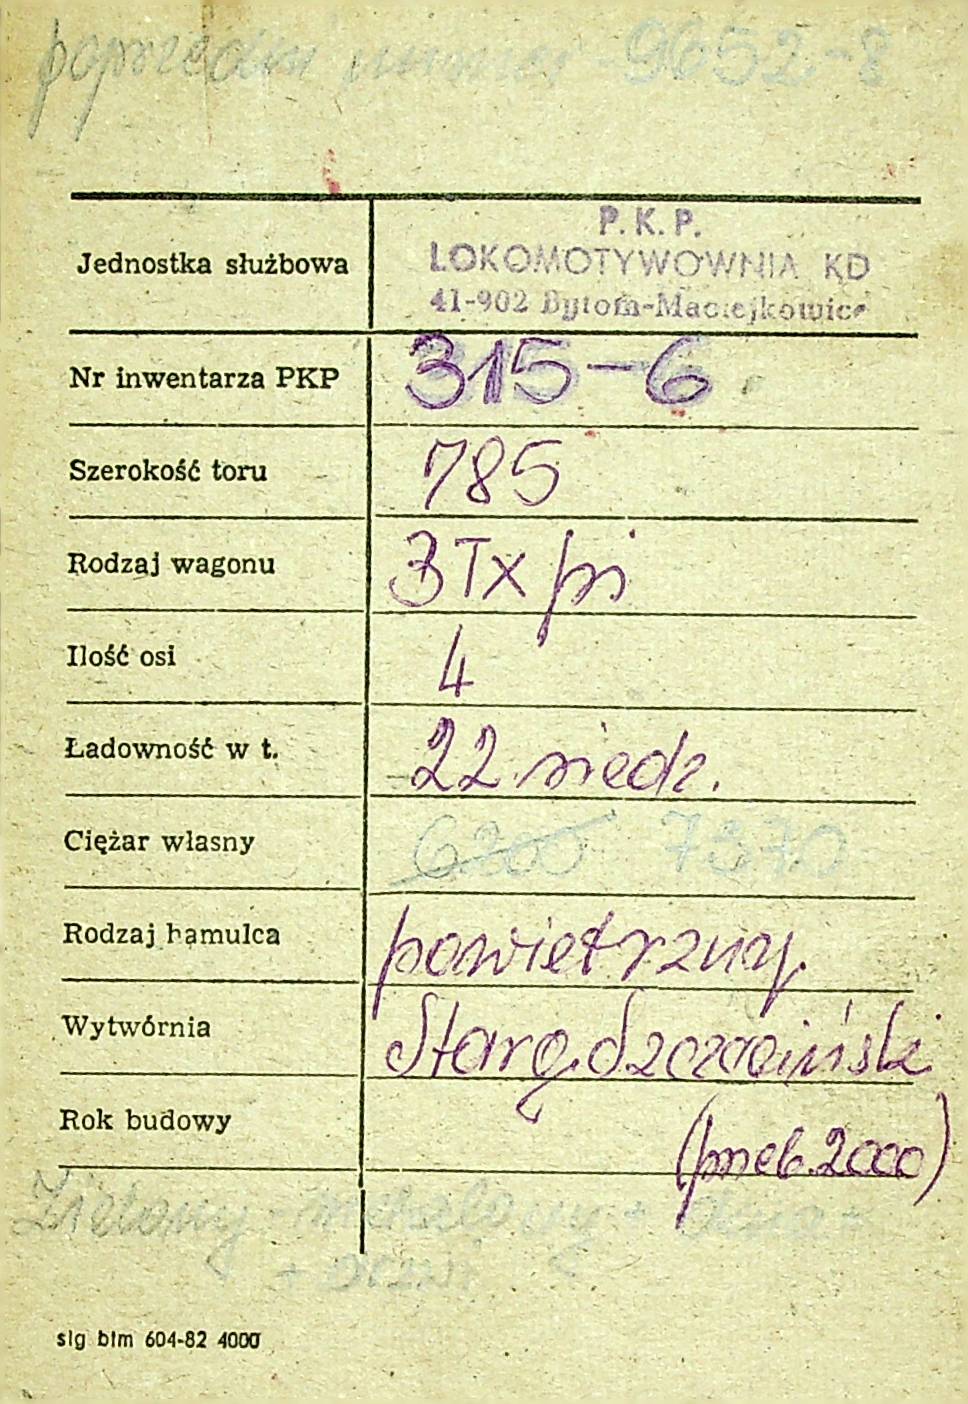 poprzedni numer - 9652-8
P.K.P.
Jednostka służbowa LOKOMOTYWOWNIA KD
41-902 Bytom-Maciejkowice
Nr inwentarza PKP 315-6
Szerokość toru 785
Rodzaj wagonu 3Tx pi
Ilość osi 4
Ładowność w t. 22 siedz.
Ciężar własny 6200 7370
Rodzaj hamulca powietrzny
Wytwórnia Starg. Szczeciński
Rok budowy (przeb. 2000)
Zielony
slg blm 604-82 4000